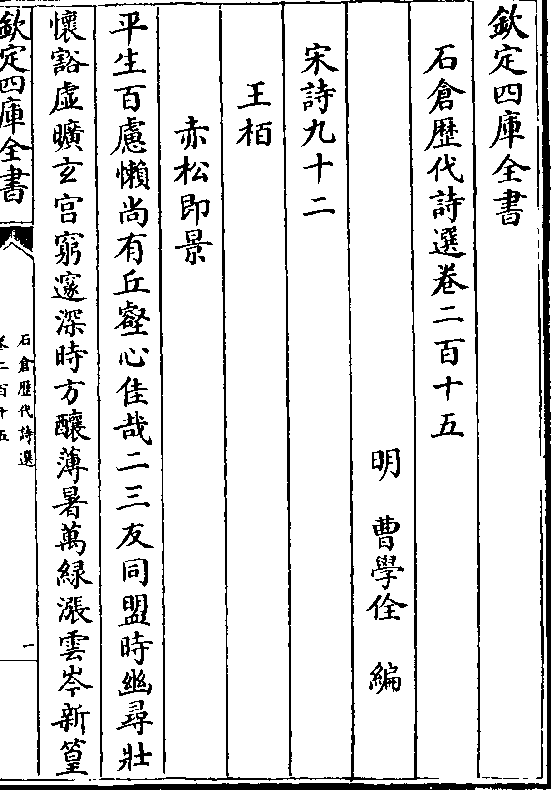 欽定四庫全書
石倉歴代詩選卷二百十五
明　曹學佺　編
宋詩九十二
王柏
赤松即景
平生百慮懶尚有丘壑心佳哉二三友同盟時幽尋壯
懷豁虚曠玄宫窮邃深時方釀薄暑萬緑漲雲岑新篁
欽定四庫全書
石倉歴代詩選
卷二百十五
一